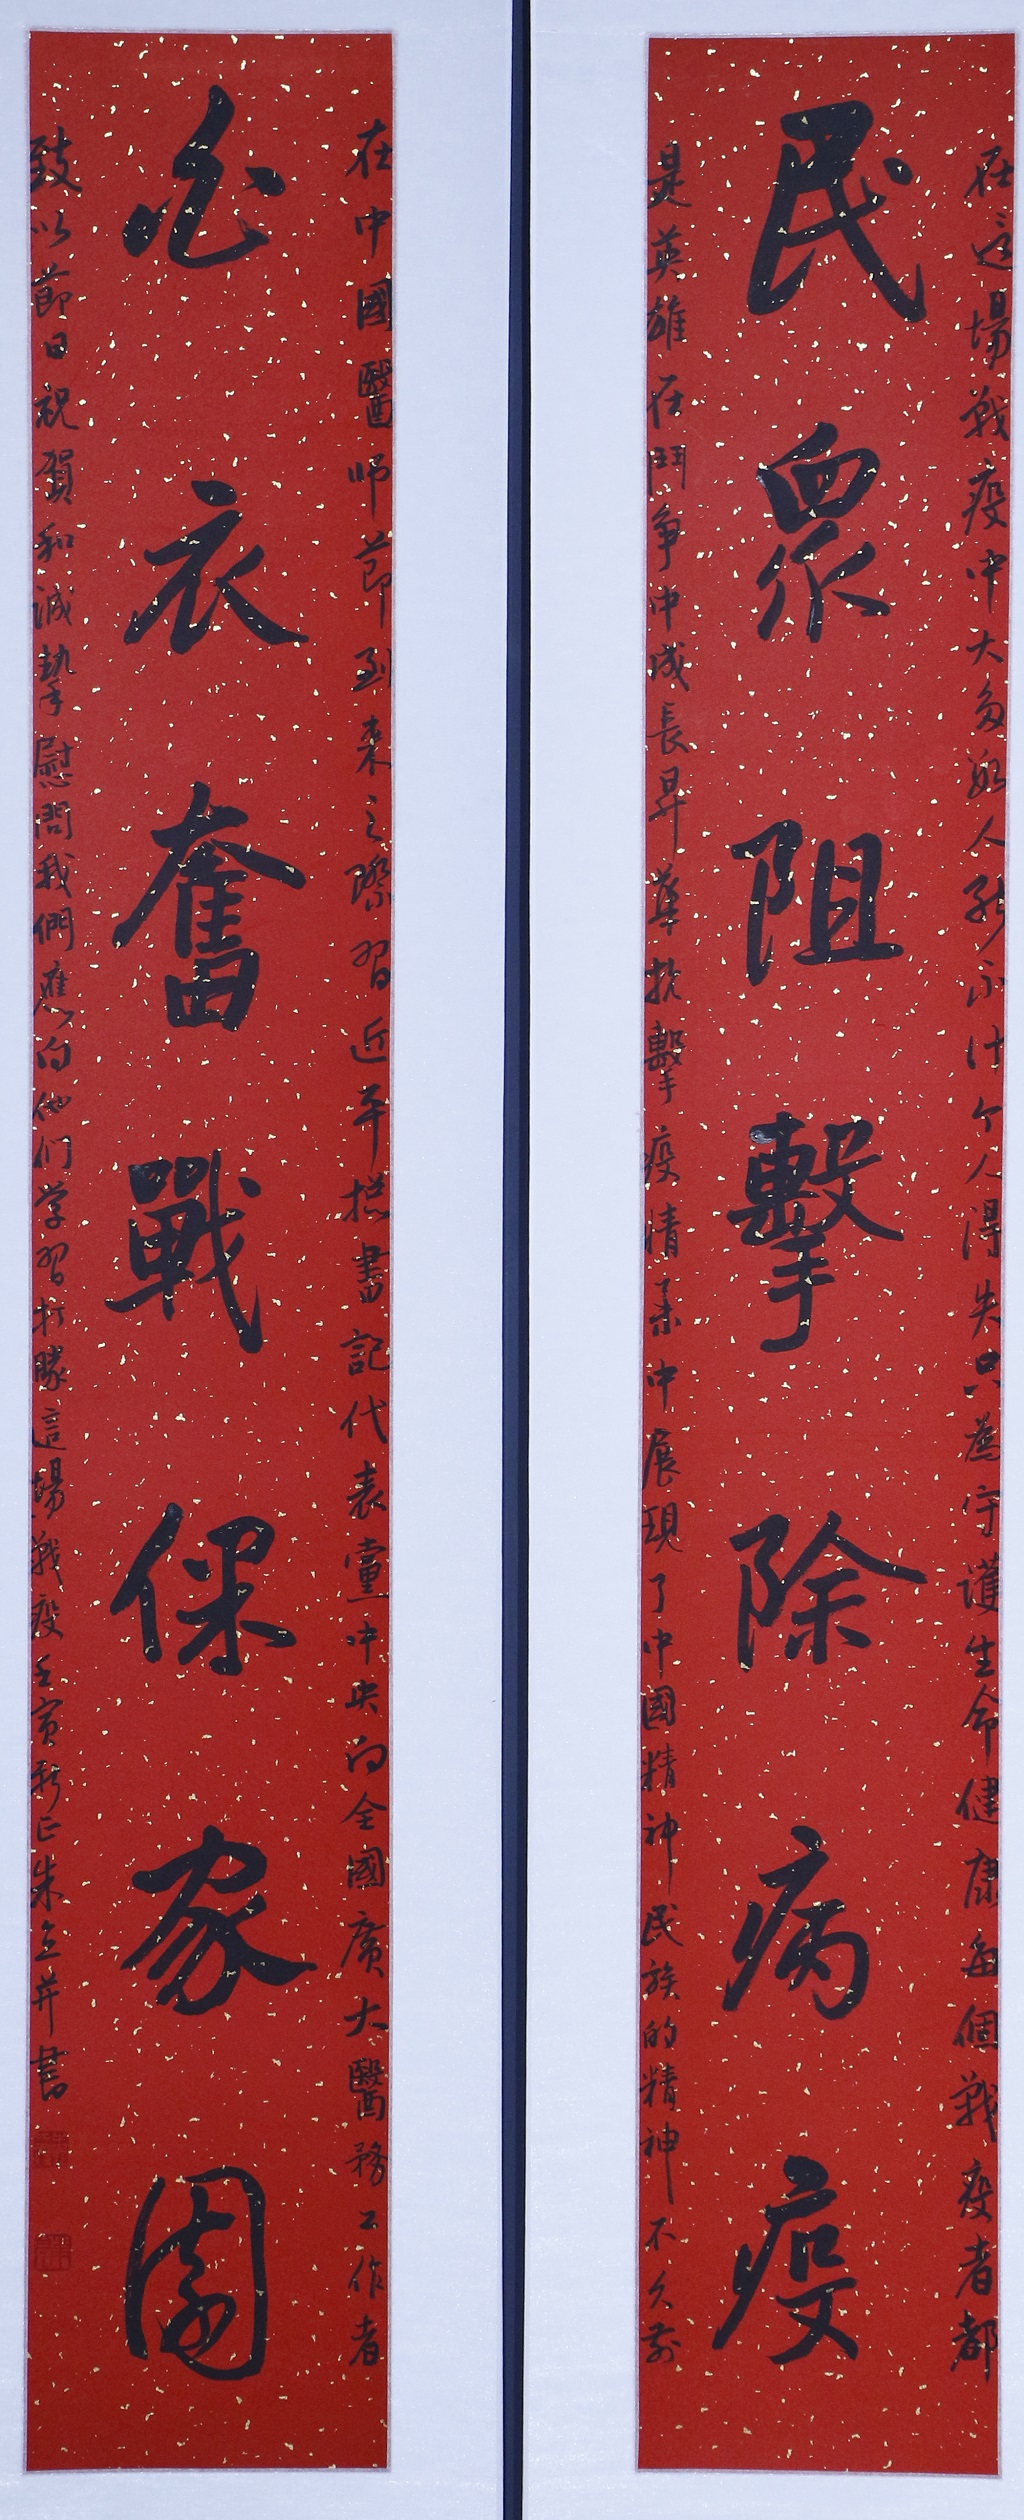 在這場戰疫中大多數人能不计个人得失只為守護生命健康每個戰疫者都
民眾阻擊除病疫
是英雄在鬥争中成長昇華抗擊疫情集中展現了中國精神神民族的精神不久前
在中國醫師節到来之際習近平總書記代表黨中央向全國廣大醫務工作者
衣奮戰保家園
致以節日祝賀和誠摯慰問我們應向他们学習打勝這場戰疫壬寅新正朱立并書